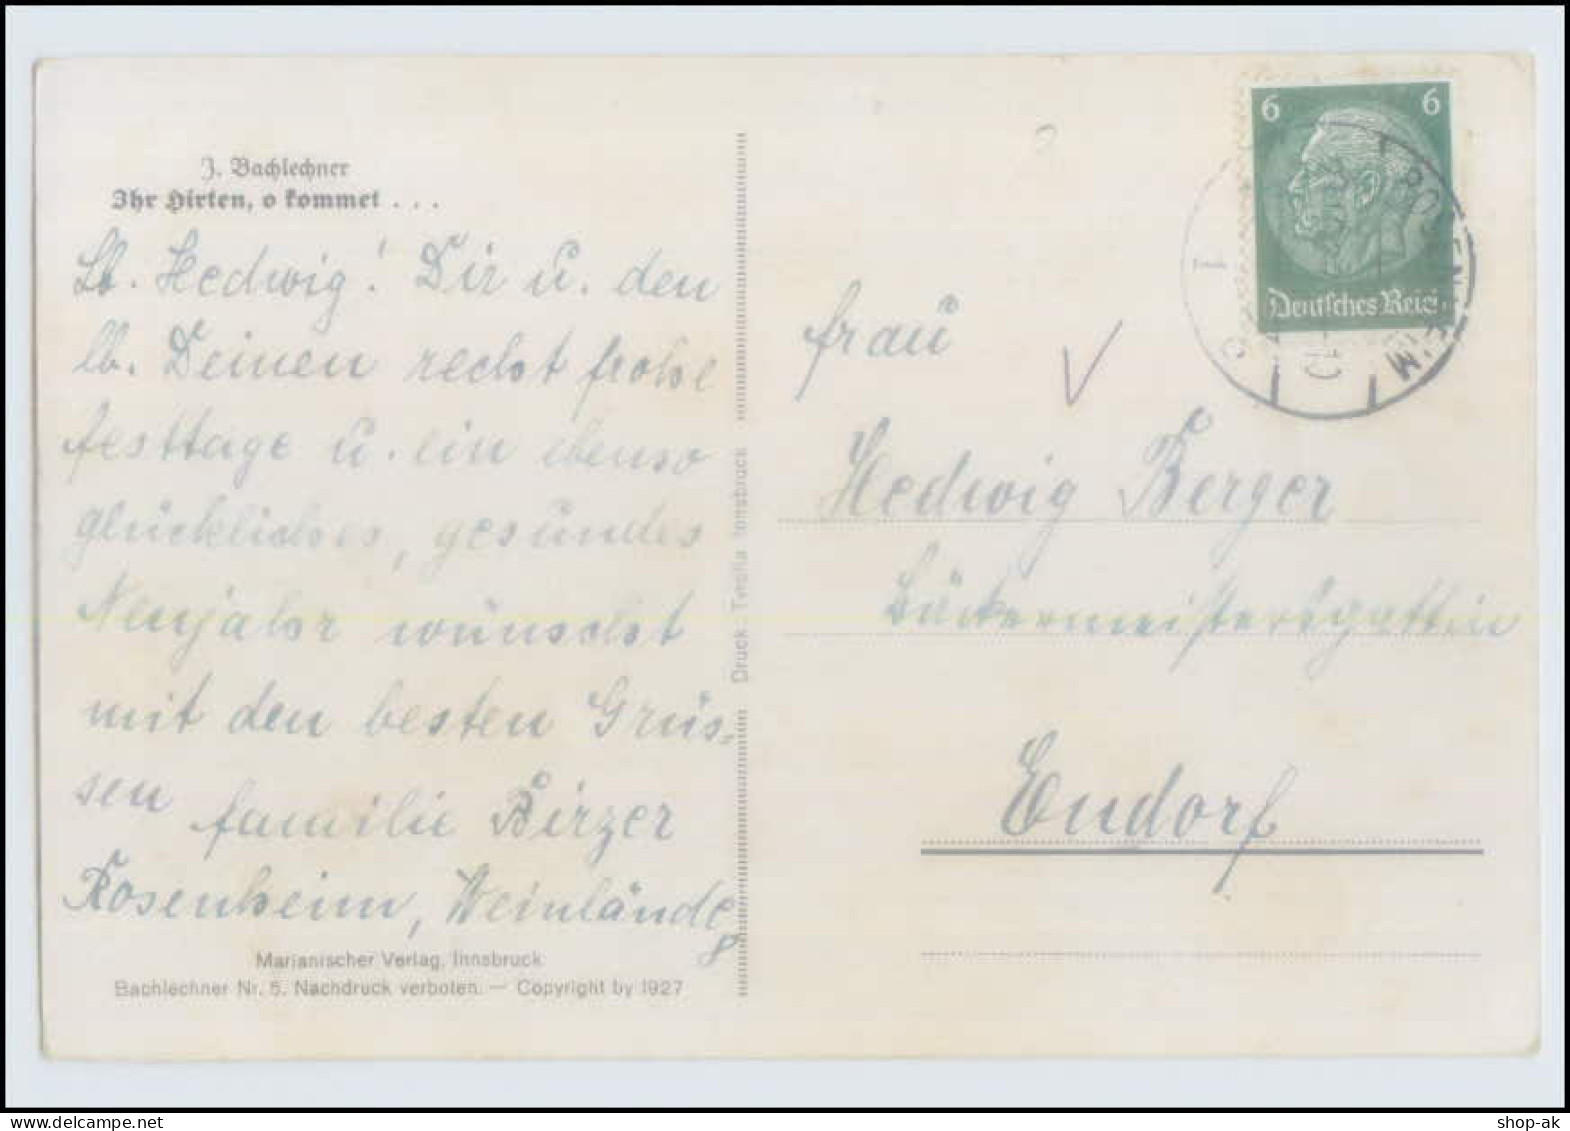 J. Bachlechner
Ihr Hirten, o kommet . . .
Lb. Hedwig! Dir u. den
lb. Deinen recht frohe
Festtage u. ein ebenso
glückliches, gesundes
Neujahr wünscht
mit den besten Grüs-
sen Familie Birzer
Rosenheim, Weinlände
8
Marianischer Verlag, Innsbruck
Bachlechner Nr. 5. Nachdruck verboten. — Copyright by 1927
Druck: Tyrolia Innsbruck
6 6
Deutsches Reich
ROSENHEIM
Frau
Hedwig Berger
Bäckermeistersgattin
Endorf
shop-ak